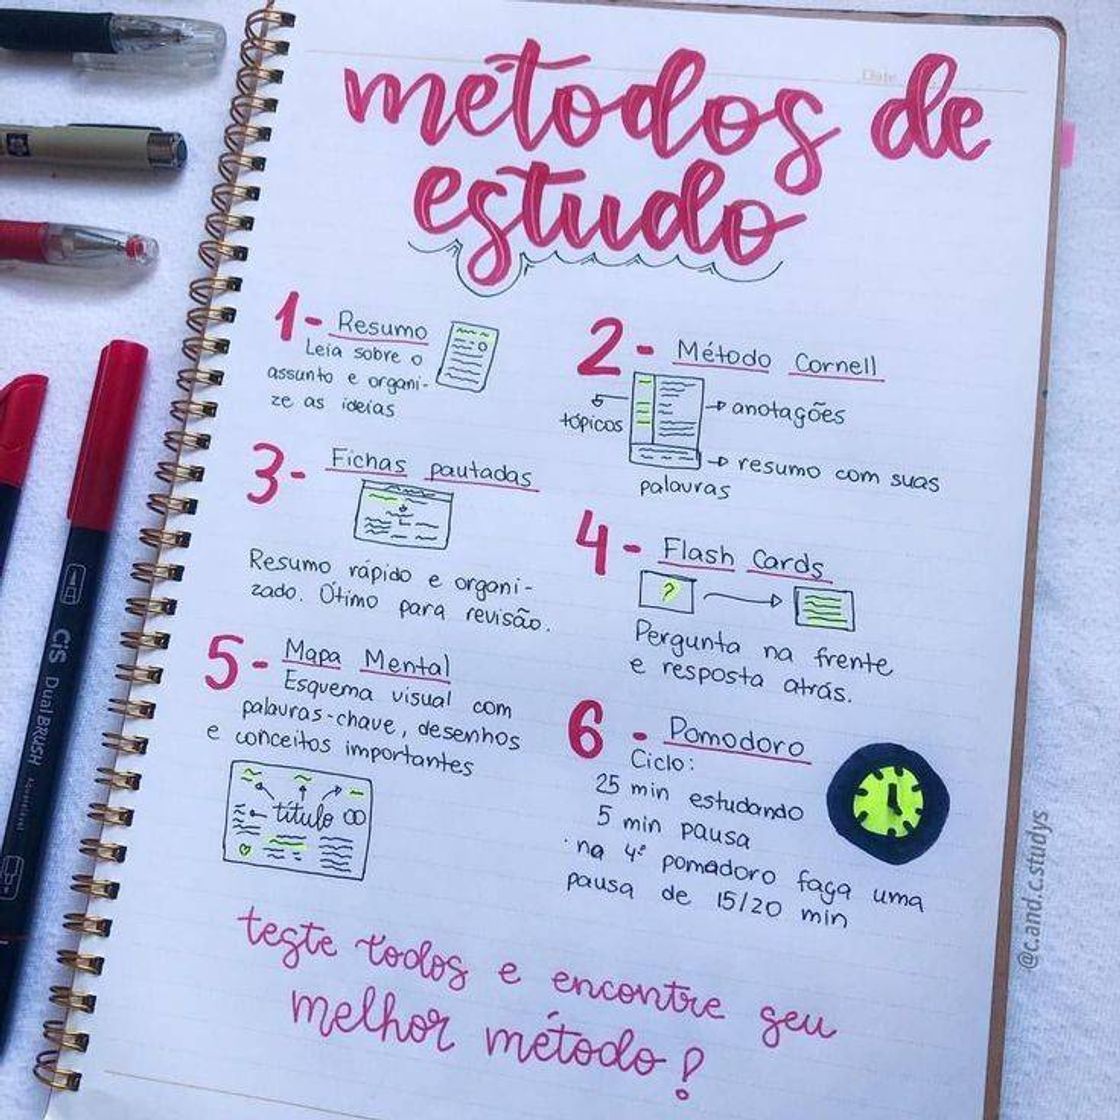 Date
métodos de
estudo
1- Resumo
Leia sobre o
assunto e organi-
ze as ideias
2- Método Cornell
tópicos
anotações
resumo com suas
palavras
3- Fichas pautadas
Resumo rápido e organi-
zado. Ótimo para revisão.
4- Flash Cards
?
Pergunta na frente
e resposta atrás.
5- Mapa Mental
Esquema visual com
palavras-chave, desenhos
e conceitos importantes
título
6- Pomodoro
Ciclo:
25 min estudando
5 min pausa
· na 4º pomadoro faça uma
pausa de 15/20 min
teste todos e encontre seu
melhor método!
CiS Dual BRUSH
@c.and.c.studys